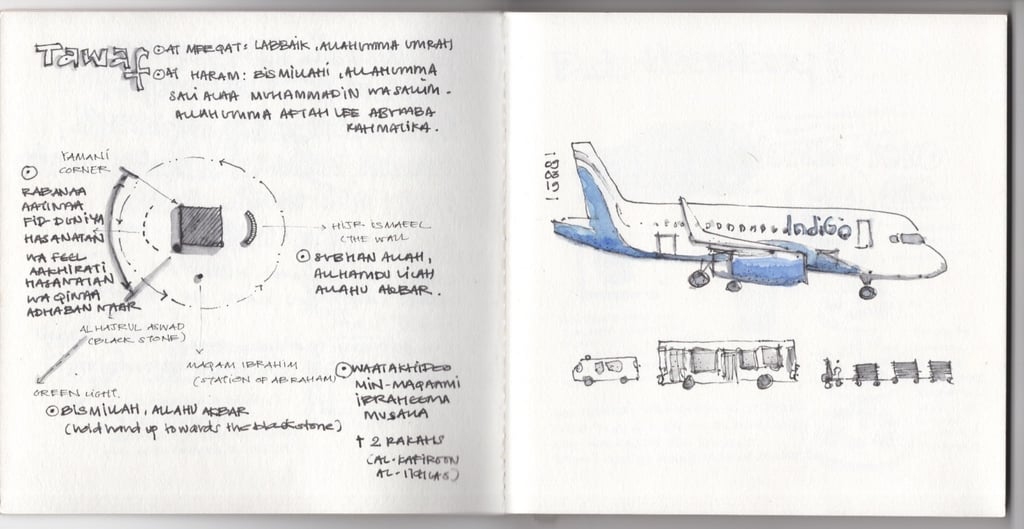 Tawaf
AT MEEQAT: LABBAIK, ALLAHUMMA UMRAH
AT HARAM: BISMILLAHI, ALLAHUMMA
SALI ALAA MUHAMMADIN WA SALLIM.
ALLAHUMMA AFTAH LEE ABWAABA
RAHMATIKA.
YAMANI
CORNER
RABANAA
AATINAA
FID-DUNIYA
HASANATAN
WA FEEL
AAKHIRATI
HASANATAN
WA QINAA
ADHABAN NAAR
HIJR ISMAEEL
(THE WALL
SUBHAN ALLAH,
ALHAMDU LILAH
ALLAHU AKBAR.
AL HAJRUL ASWAD
(BLACK STONE)
MAQAM IBRAHIM
(STATION OF ABRAHAM)
GREEN LIGHT.
BISMILLAH, ALLAHU AKBAR
(hold hand up towards the black stone)
WAATAKHIDEO
MIN-MAQAAMI
IBRAHEEMA
MUSALLA
+ 2 RAKAHS
(AL-KAFIROON
AL-IKHLAS)
IndiGo